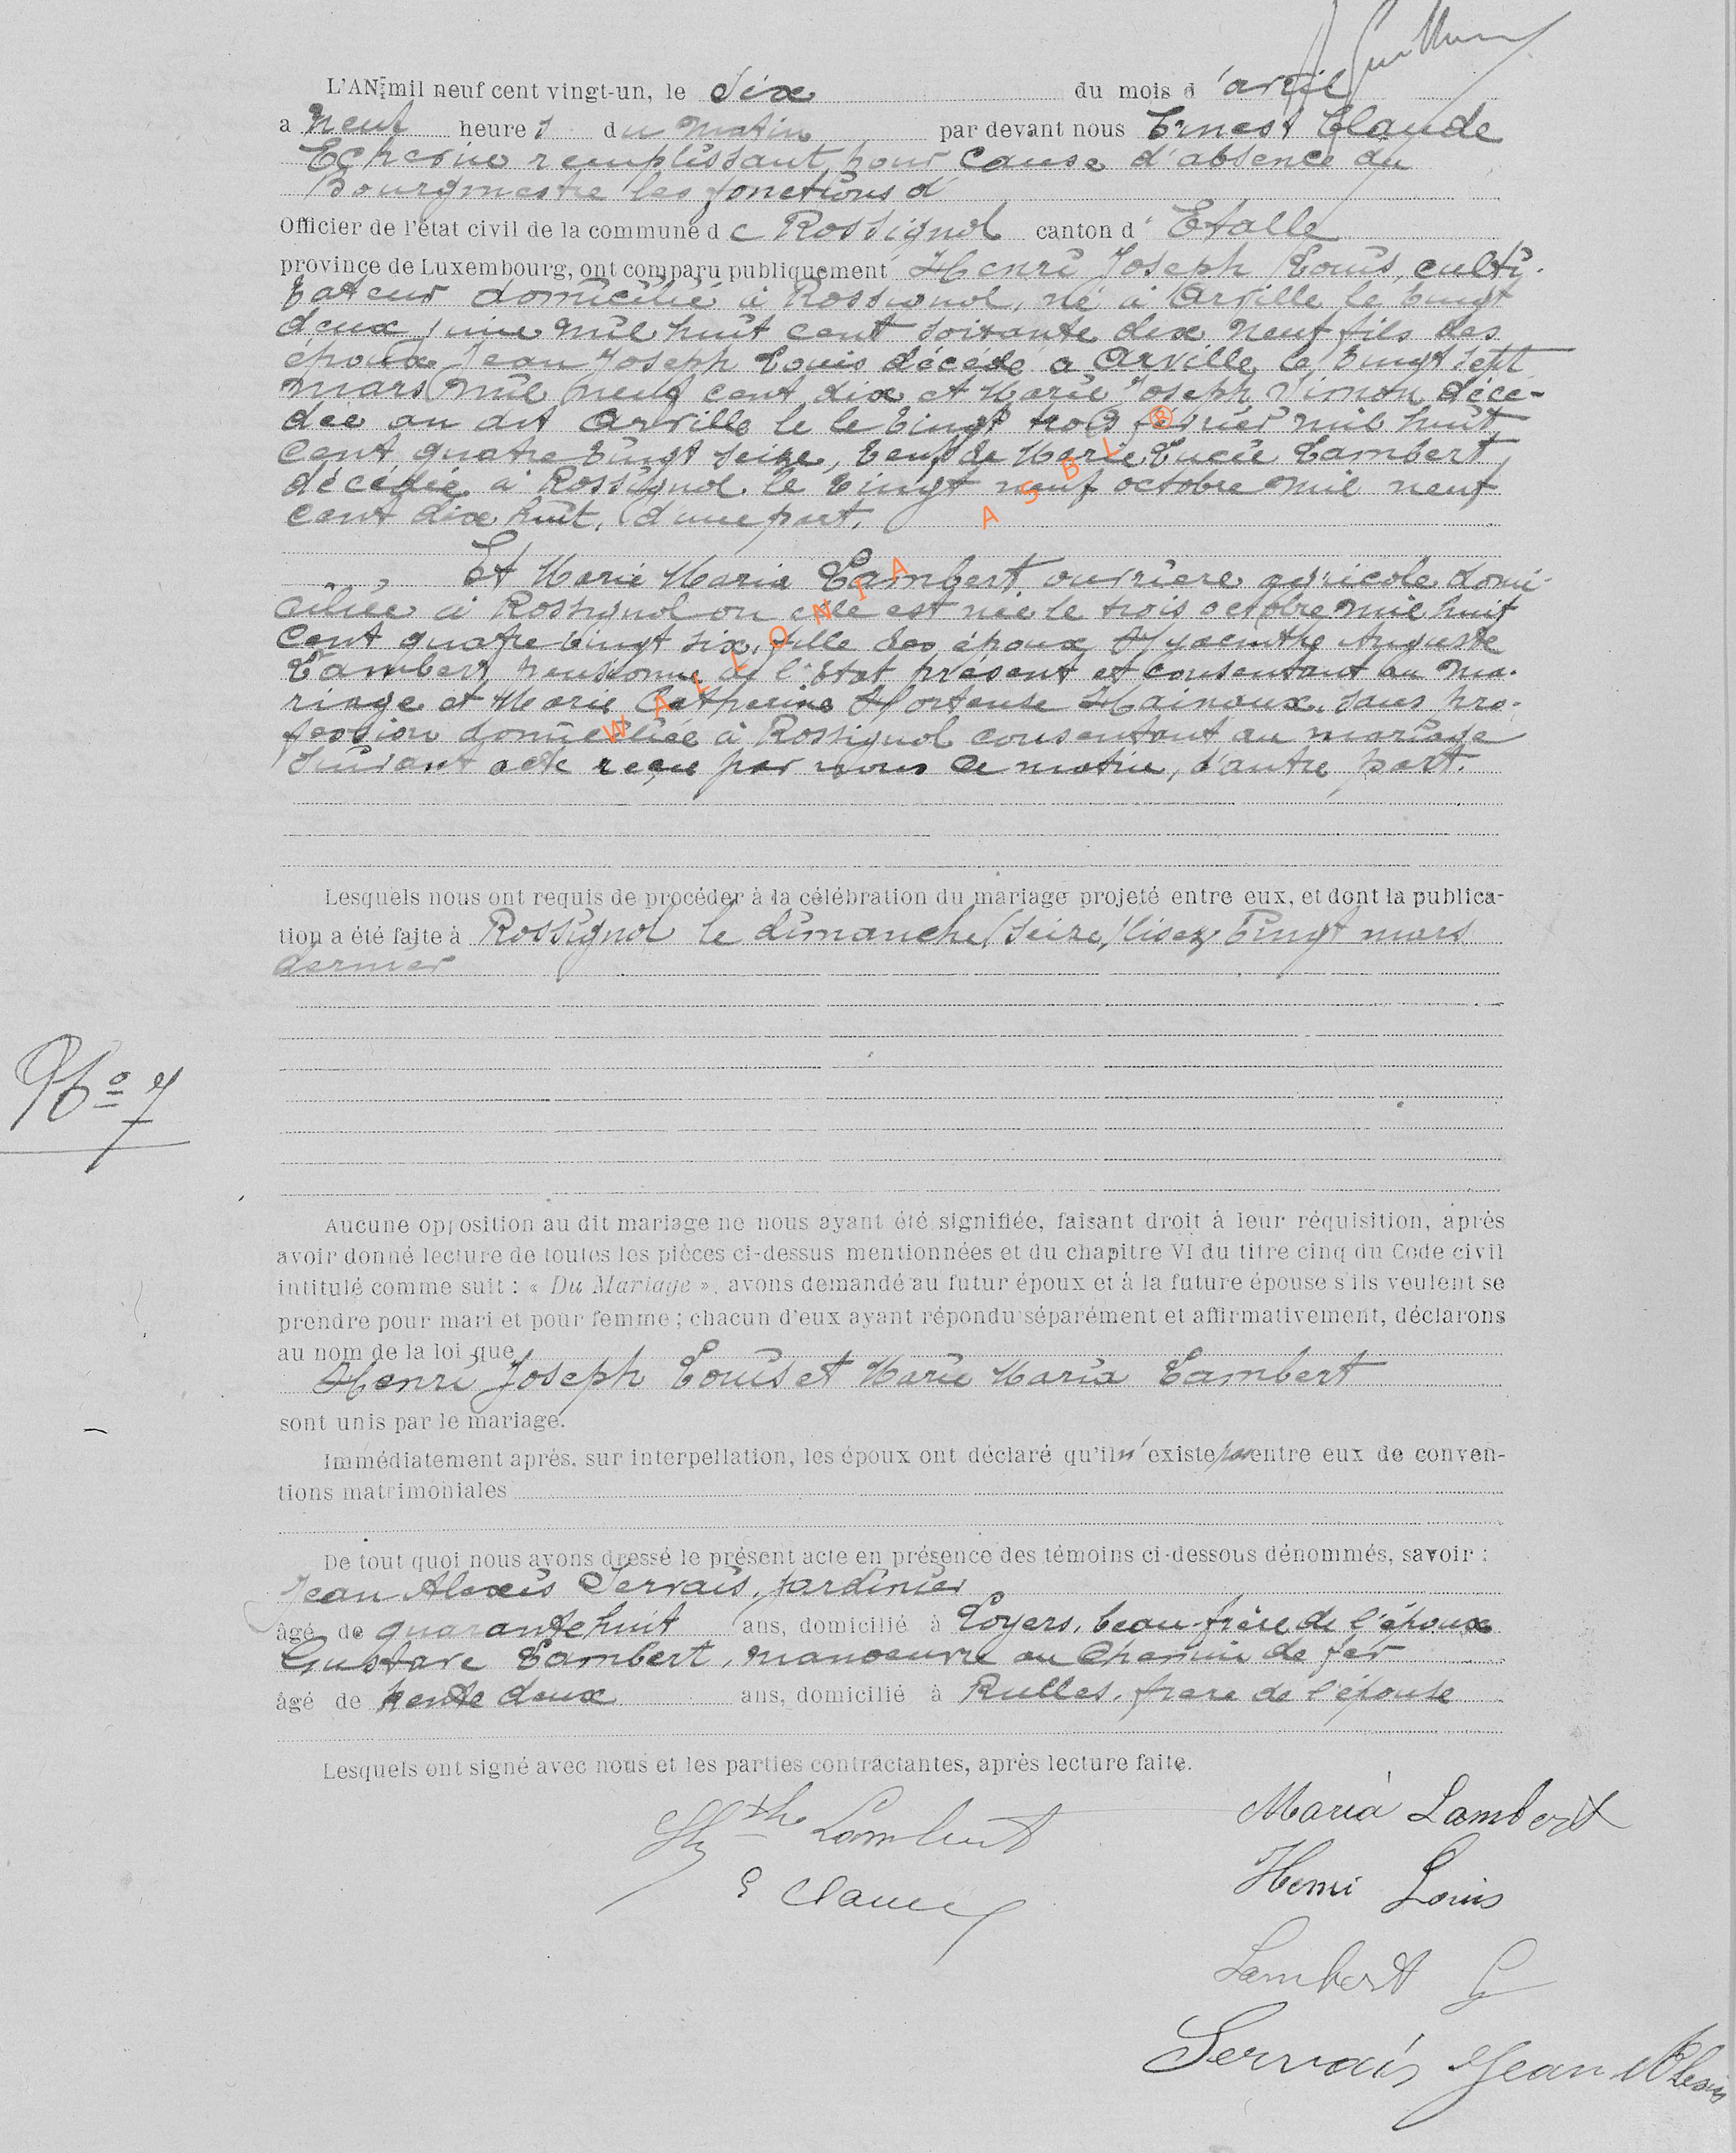 L'AN mil neuf cent vingt-un, le six du mois d'avril
a neuf heures du matin par devant nous Ernest Claude
Echevin remplissant pour cause d'absence du
Bourgmestre les fonctions d'
Officier de l'état civil de la commune de Rossignol canton d'Etalle
province de Luxembourg, ont comparu publiquement Henri Joseph Louis, culti-
vateur domicilié à Rossignol, né à Arville le vingt
deux juin mil huit cent soixante dix neuf fils des
époux Jean Joseph Louis décédé à Arville le vingt sept
mars mil neuf cent dix et Marie Joseph Simon décé-
dée au dit Arville le le vingt trois février mil huit
cent quatre vingt seize, veuf de Marie Lucie Lambert
décédée à Rossignol le vingt neuf octobre mil neuf
cent dix huit, d'une part.
Et Marie Maria Lambert ouvrière agricole domi-
ciliée à Rossignol ou elle est née le trois octobre mil huit
cent quatre vingt six, fille des époux Hyacinthe Auguste
Lambert, pensionné de l'Etat présent et consentant au ma-
riage et Marie Catherine Hortense Hainaux, sans pro-
fession domiciliée à Rossignol consentant au mariage
suivant acte reçu par nous ce matin, d'autre part.
WALLONIA ASBL ®
Lesquels nous ont requis de procéder à la célébration du mariage projeté entre eux, et dont la publica-
tion a été faite à Rossignol le dimanche (seize) lisez vingt mars
dernier
No 7
Aucune opposition au dit mariage ne nous ayant été signifiée, faisant droit à leur réquisition, après
avoir donné lecture de toutes les pièces ci-dessus mentionnées et du chapitre VI du titre cinq du Code civil
intitulé comme suit : « Du Mariage », avons demandé au futur époux et à la future épouse s'ils veulent se
prendre pour mari et pour femme ; chacun d'eux ayant répondu séparément et affirmativement, déclarons
au nom de la loi que
Henri Joseph Louis et Marie Maria Lambert
sont unis par le mariage.
Immédiatement après, sur interpellation, les époux ont déclaré qu'il n'existe pas entre eux de conven-
tions matrimoniales
De tout quoi nous avons dressé le présent acte en présence des témoins ci-dessous dénommés, savoir :
Jean Alexis Servais, jardinier
âgé de quarante huit ans, domicilié à Loyers, beau-frère de l'époux
Gustave Lambert, manoeuvre au chemin de fer
âgé de trente deux ans, domicilié à Rulles, frere de l'épouse
Lesquels ont signé avec nous et les parties contractantes, après lecture faite.
Maria Lambert
Hythe Lambert
Henri Louis
E Claude
Lambert G
Servais Jean Alexis